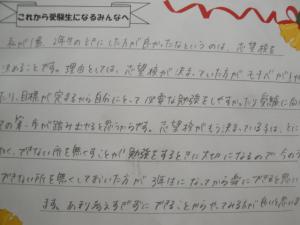 これから受験生になるみんなへ
私が1番、2年生のときにした方が良かったなというのは、志望校を
決めることです。理由としては、志望校が決まっていた方がモチベが
たり、目標が定まるから自分にとって必要な勉強をしやすかったり受験に向
ての第一歩が踏み出せると思うからです。志望校がもう決まっている人は、とに
やく、できない所を無くすことが勉強をするときに大切になるので今のう
できない所を無くしておいた方が3年生になってから楽にできると思い
ます。あまり考えすぎずにできることからやってみるが良いと思いま